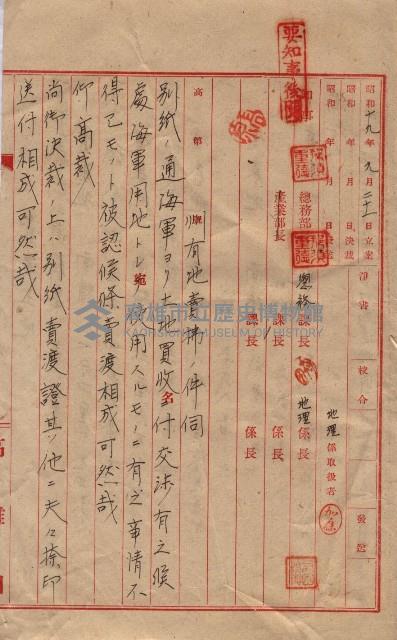 要知事後閱
昭和十九年九月二十一日立案 淨書 校合 發送
昭和 年 月 日決裁
昭和 年 月 日
地理係取扱者
總務部長 總務課長 地理係長
産業部長 課長 係長
課長 係長
高 第 號
州有地賣拂ノ件伺
別紙ノ通海軍ヨリ土地買收名付交渉有之候
處海軍用地トシ宛使用スルモノニ有之事情不
得已モノト被認候條賣渡相成可然哉
仰高裁
尚御決裁ノ上ハ別紙賣渡證其ノ他ニ夫々捺印
送付相成可然哉
高雄
高雄市立歷史博物館
KAOHSIUNG MUSEUM OF HISTORY